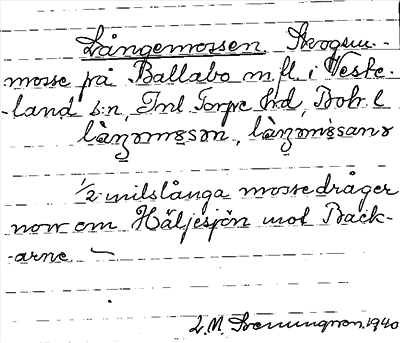 Långemossen. Skogsm.-
mosse på Ballabo m.fl. i Veste-
-land s:n, Inl Torpe hrd, Boh. l
làŋʒəmɵsən, làŋʒəmɵsanɤ
1/2 milslånga mosse dråger
norr om Häljesjön mot Back-
-arne —
L.M. Svenungsson. 1940